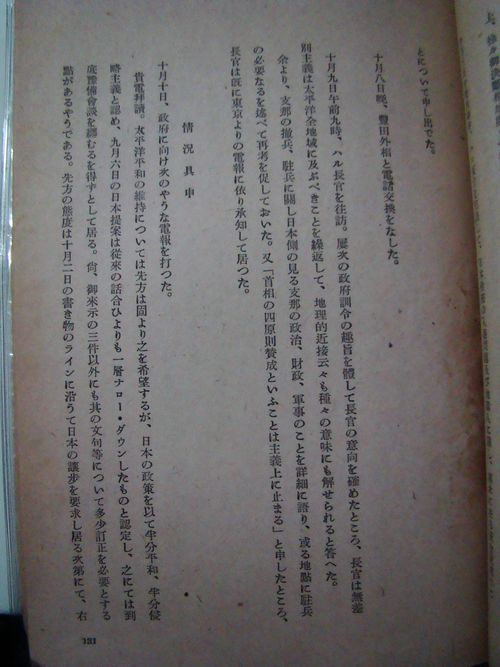 とについて申し出でた。
十月八日晩、豐田外相と電話交換をなした。
十月九日午前九時、ハル長官を往訪。屢次の政府訓令の趣旨を體して長官の意向を確めたところ、長官は無差
別主義は太平洋全地域に及ぶべきことを繰返して、地理的近接云々も種々の意味にも解せられると答へた。
余より、支那の撤兵、駐兵に關し日本側の見る支那の政治、財政、軍事のことを詳細に語り、或る地點に駐兵
の必要なるを述べて再考を促しておいた。又「首相の四原則賛成といふことは主義上に止まる」と申したところ、
長官は既に東京よりの電報に依り承知して居つた。
情況具申
十月十日、政府に向け次のやうな電報を打つた。
貴電拜讀。太平洋平和の維持については先方は固より之を希望するが、日本の政策を以て半分平和、半分侵
略主義と認め、九月六日の日本提案は從來の話合ひよりも一層ナロー・ダウンしたものと認定し、之にては到
底豫備會談を纒むるを得ずとして居る。尙、御來示の三件以外にも其の文句等について多少訂正を必要とする
點があるやうである。先方の態度は十月二日の書き物のラインに沿うて日本の讓步を要求し居る次第にて、右
131